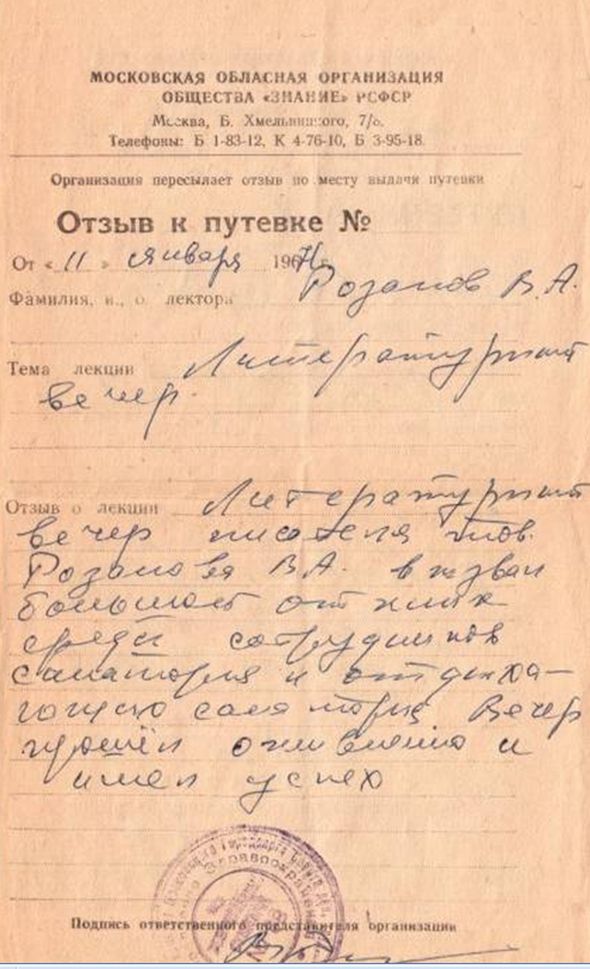 МОСКОВСКАЯ ОБЛАСНАЯ ОРГАНИЗАЦИЯ
ОБЩЕСТВА «ЗНАНИЕ» РСФСР
Москва, Б. Хмельницкого, 7/8.
Телефоны: Б 1-83-12, К 4-76-10, Б 3-95-18.
Организация пересылает отзыв по месту выдачи путевки
Отзыв к путевке №
От « 11 » января 1971 г.
Фамилия, и., о. лектора Розанов В.А.
Тема лекции Литературный
вечер.
Отзыв о лекции Литературный
вечер писателя тов.
Розанова В.А. вызвал
большой отклик
среди сотрудников
санатория и отдыха-
ющих санатория. Вечер
прошёл оживленно и
имел успех
Здравоохранения
Подпись ответственного представителя организации